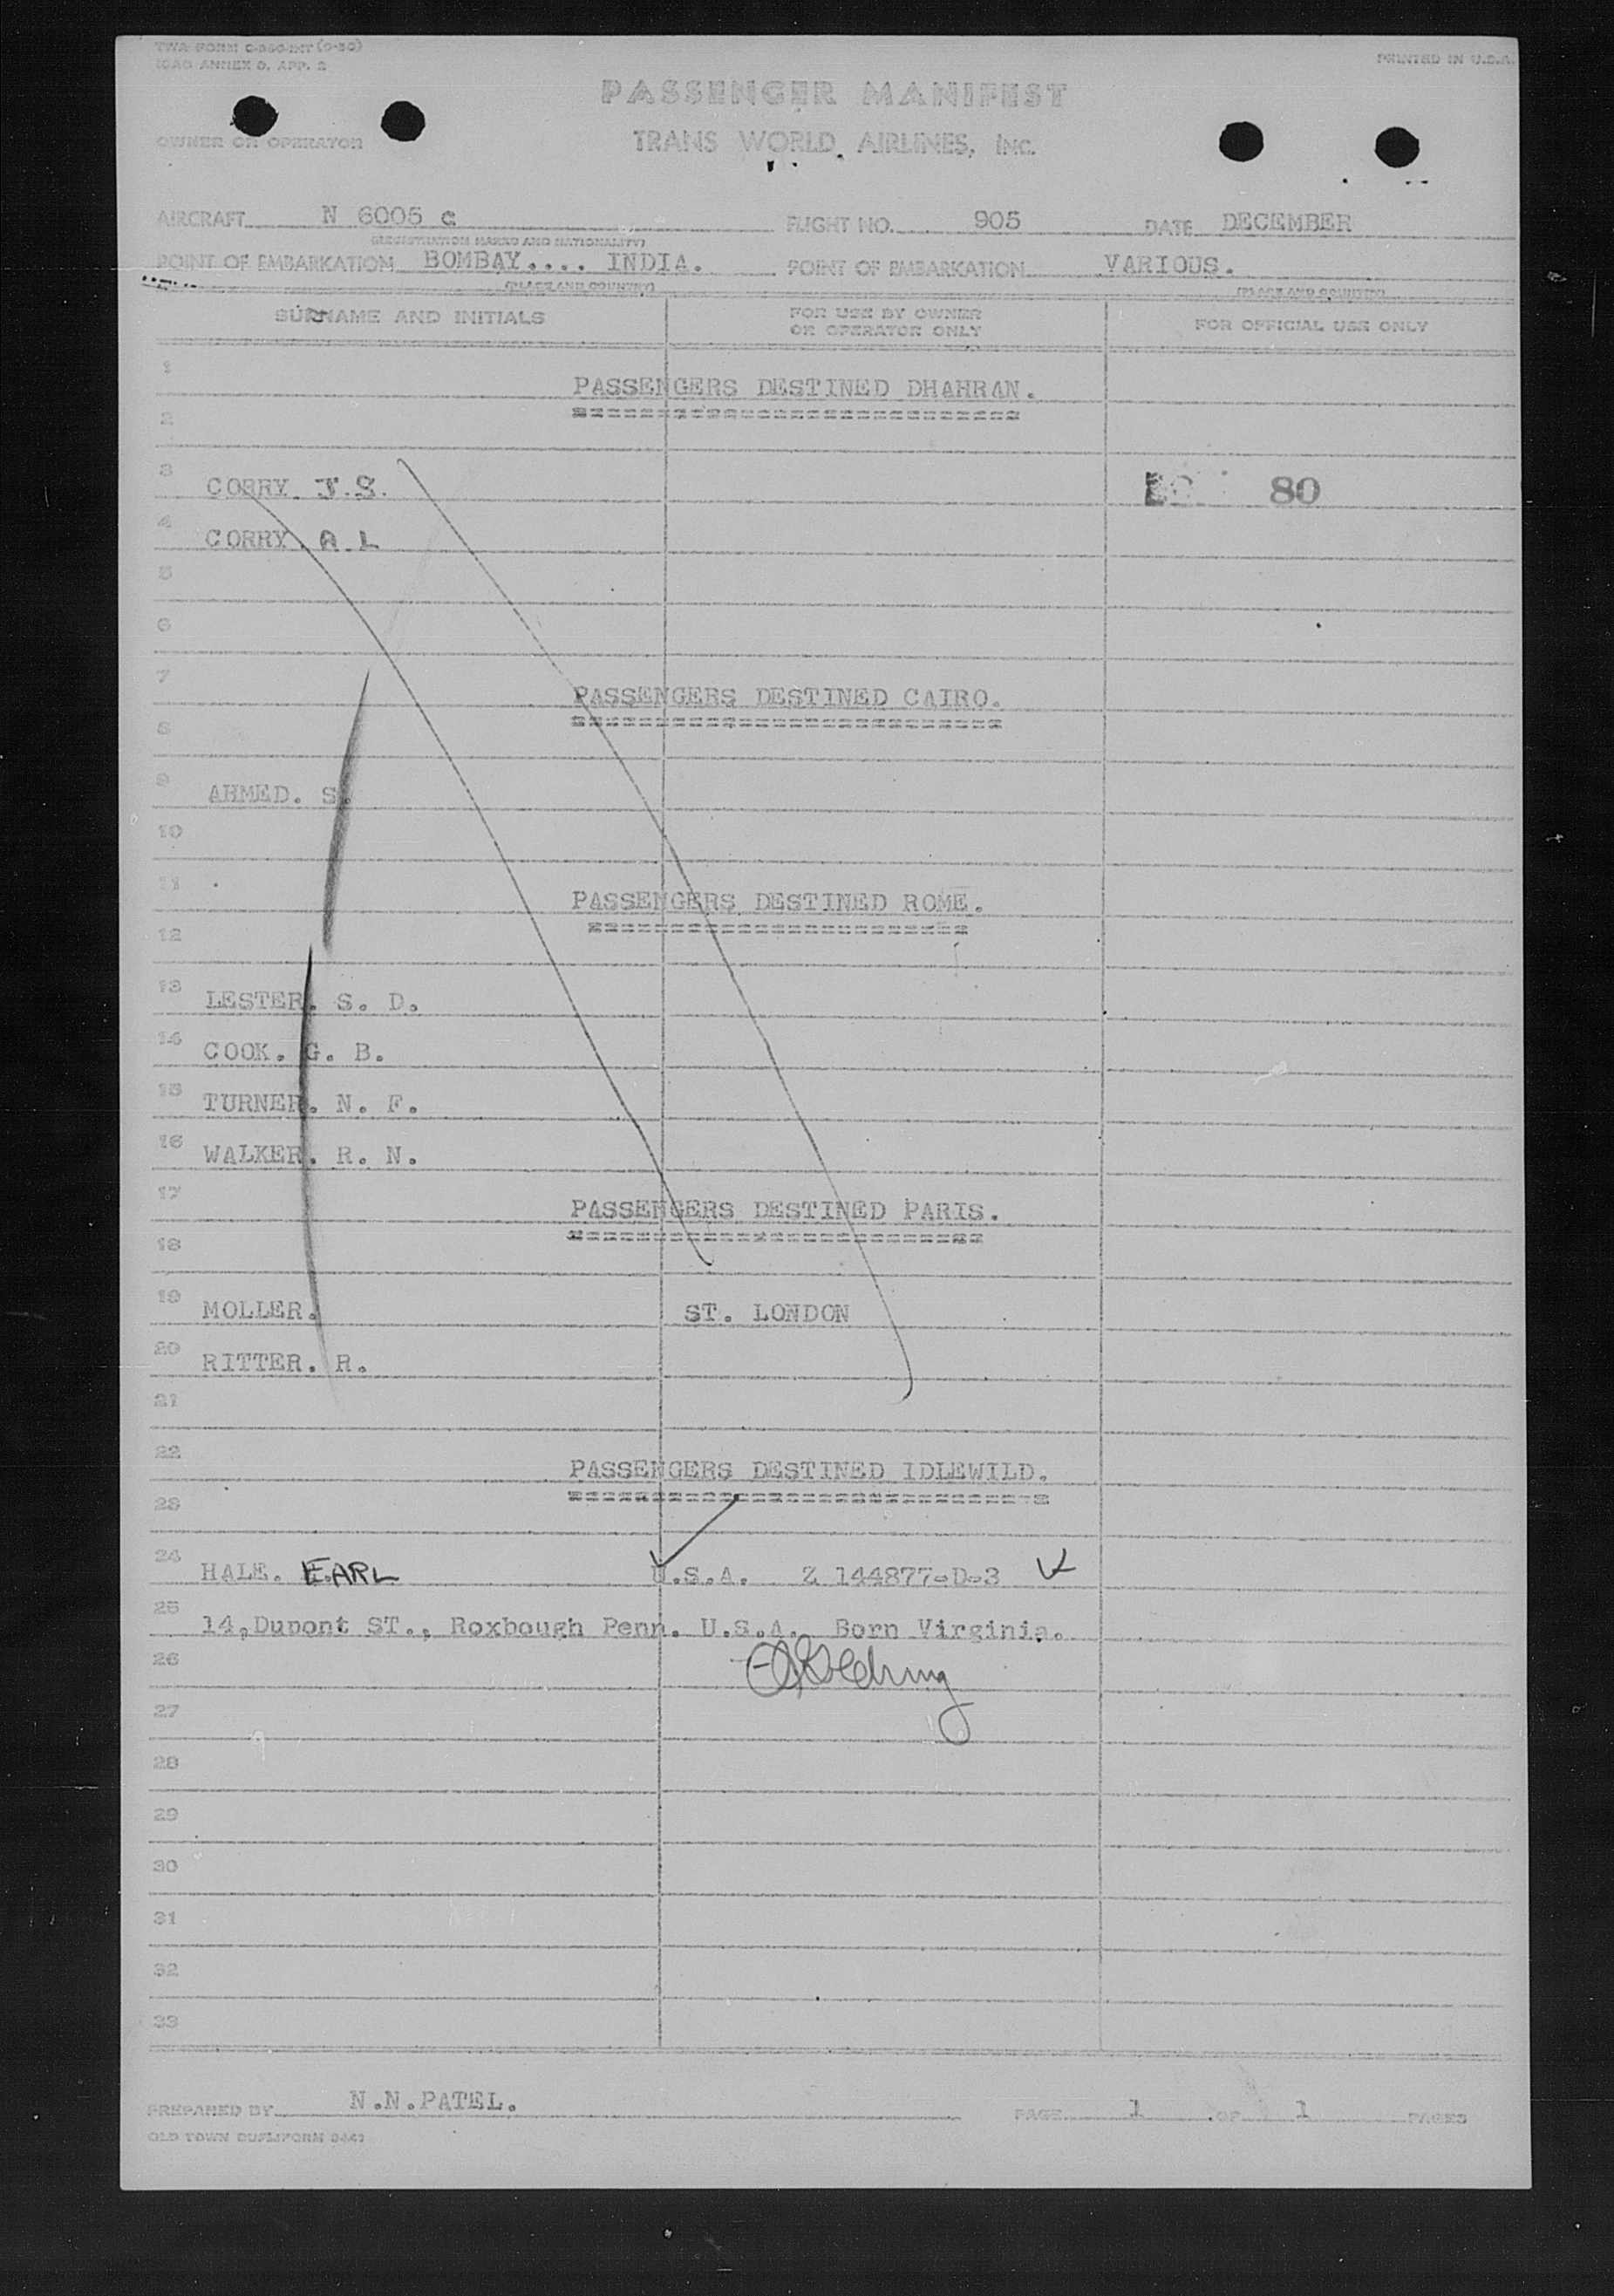 TWA FORM (9-50)
ICAO ANNEX 9, APP. 2
PRINTED IN U.S.A.
PASSENGER MANIFEST
OWNER OR OPERATOR
TRANS WORLD AIRLINES, INC.
AIRCRAFT N 6005 C FLIGHT NO. 905 DATE DECEMBER
(REGISTRATION MARKS AND NATIONALITY)
POINT OF EMBARKATION BOMBAY.... INDIA. POINT OF EMBARKATION VARIOUS.
(PLACE AND COUNTRY) (PLACE AND COUNTRY)
SURNAME AND INITIALS FOR USE BY OWNER OR OPERATOR ONLY FOR OFFICIAL USE ONLY
1
PASSENGERS DESTINED DHAHRAN.
2
3 CORRY. J.S. 80
4 CORRY. A L
5
6
7
PASSENGERS DESTINED CAIRO.
8
9 AHMED. S.
10
11
PASSENGERS DESTINED ROME.
12
13 LESTER. S. D.
14 COOK. G. B.
15 TURNER. N. F.
16 WALKER. R. N.
17
PASSENGERS DESTINED PARIS.
18
19 MOLLER. ST. LONDON
20 RITTER. R.
21
22
PASSENGERS DESTINED IDLEWILD.
23
24 HALE. EARL U.S.A. Z 144877-D-3
25 14,Dupont ST., Roxbough Penn. U.S.A. Born Virginia.
26
27
28
29
30
31
32
33
PREPARED BY N.N.PATEL. PAGE 1 OF 1 PAGES
OLD TOWN DUPLIFORM